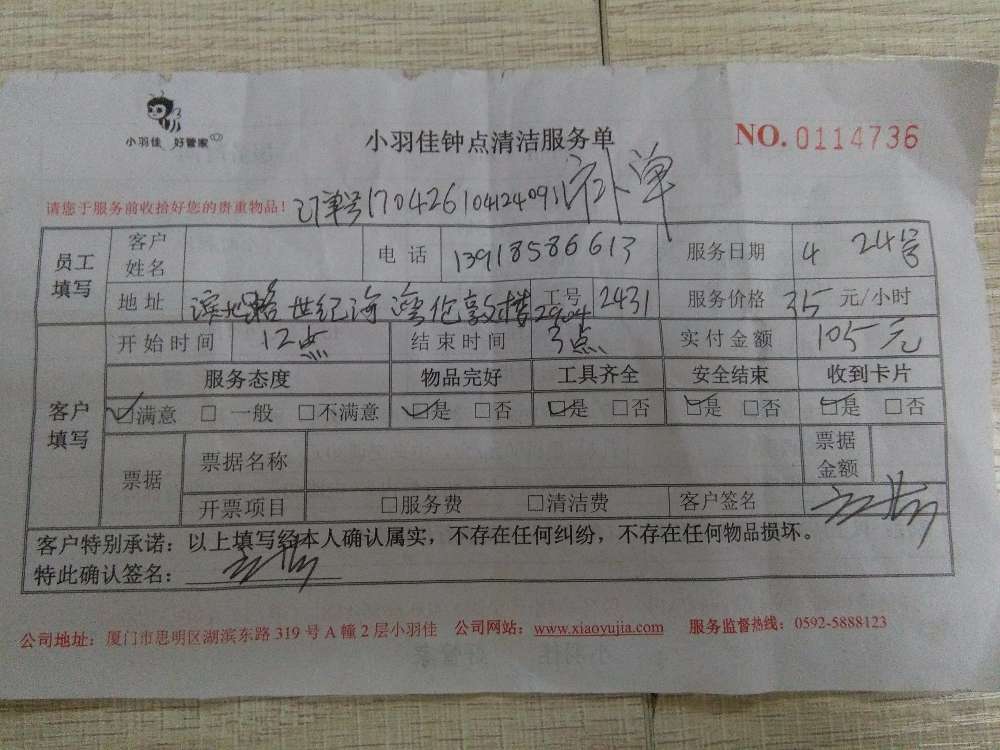 小羽佳 好管家
小羽佳钟点清洁服务单
NO. 0114736
请您于服务前收拾好您的贵重物品！
订单号170426104124091 补单
员工填写 客户姓名 电话 13918586613 服务日期 4 24号
地址 世纪海湾伦敦楼2904 工号 2431 服务价格 35 元/小时
开始时间 12点 结束时间 3点 实付金额 105元
客户填写 服务态度 物品完好 工具齐全 安全结束 收到卡片
☑满意 □一般 □不满意 ☑是 □否 ☑是 □否 ☑是 □否 ☑是 □否
票据 票据名称 票据金额
开票项目 □服务费 □清洁费 客户签名
客户特别承诺：以上填写经本人确认属实，不存在任何纠纷，不存在任何物品损坏。
特此确认签名：
公司地址：厦门市思明区湖滨东路 319 号 A 幢 2 层小羽佳 公司网站：www.xiaoyujia.com 服务监督热线：0592-5888123